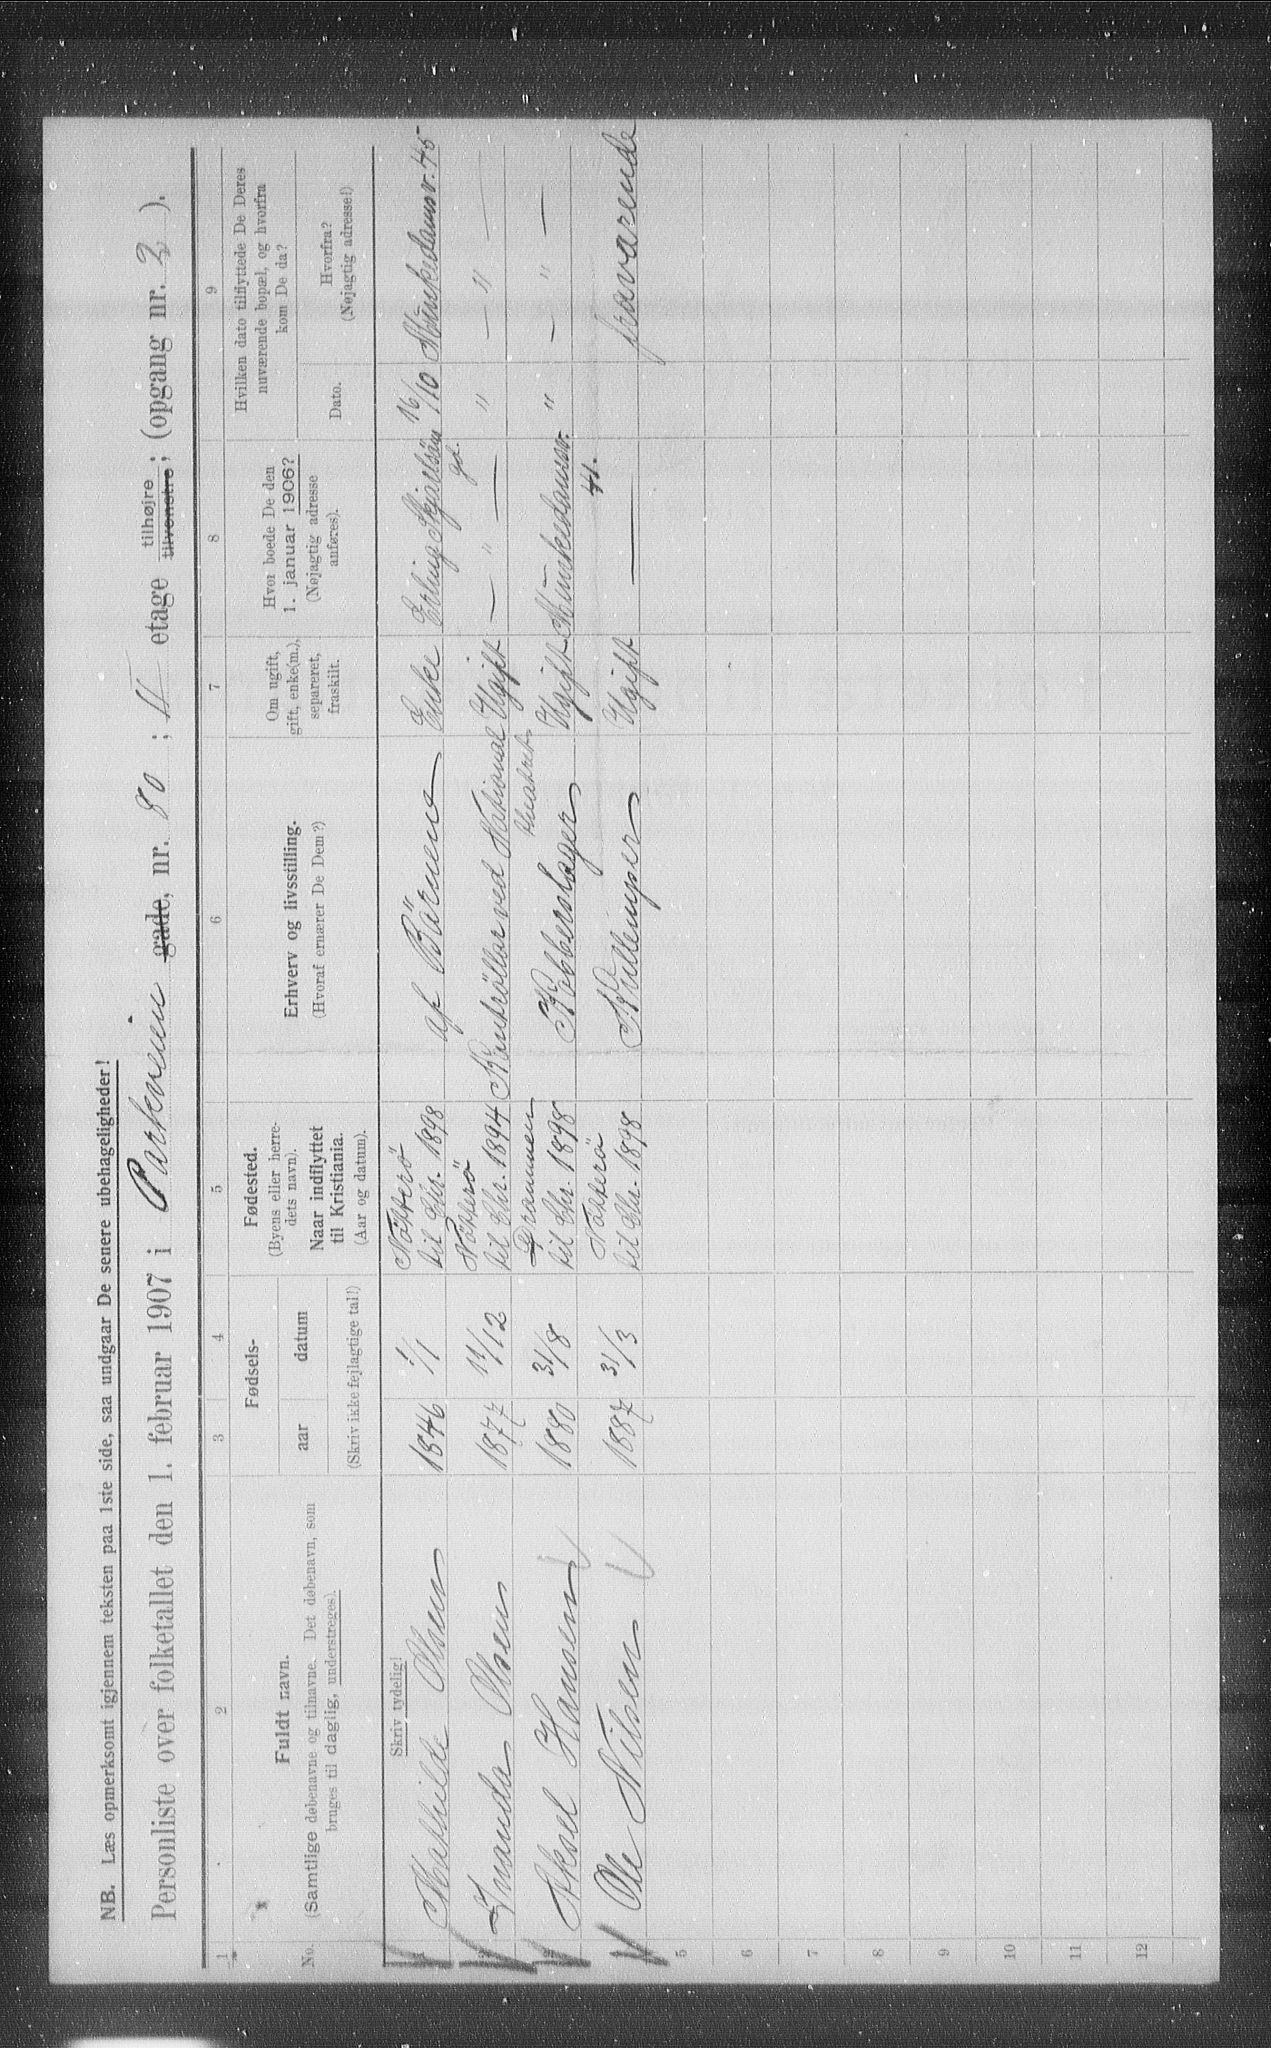 NB. Læs opmerksomt igjennem teksten paa 1ste side, saa undgaar De senere ubehageligheder!
Personliste over folketallet den 1. februar 1907 i Parkveien gade, nr. 80 ; II etage tilhøjre tilvenstre ; (opgang nr. 2 ).
1 2 3 4 5 6 7 8 9
No.
Fuldt navn.
(Samtlige døbenavne og tilnavne. Det døbenavn, som
bruges til daglig, understreges).
Fødsels-
aar
datum
(Skriv ikke fejlagtige tal!)
Fødested.
(Byens eller herre-
dets navn).
Naar indflyttet
til Kristiania.
(Aar og datum).
Erhverv og livsstilling.
(Hvoraf ernærer De Dem?)
Om ugift,
gift, enke(m.),
separeret,
fraskilt.
Hvor boede De den
1. januar 1906?
(Nøjagtig adresse
anføres).
Hvilken dato tilflyttede De Deres
nuværende bopæl, og hvorfra
kom De da?
Dato.
Hvorfra?
(Nøjagtig adresse!)
Skriv tydelig!
1 Mathilde Olsen 1846 1/1 Nötterö til Chr. 1898 af Bärnene Enke Erling Skjalsöns gd. 16/10 Munkedamsv. 45
2 Amanda Olsen 1877 11/12 Nötterö til Chr. 1894 Kontröllør ved National theatret Ugift — " — " — " —
3 Aksel Hansen 1880 31/8 Drammen til Chr. 1898 Kobberslager Ugift Munkedamsv. 41. " — " —
4 Ole Nilsen 1887 31/3 Nötterö til Chr. 1898 Ugift — fraværende
5
6
7
8
9
10
11
12